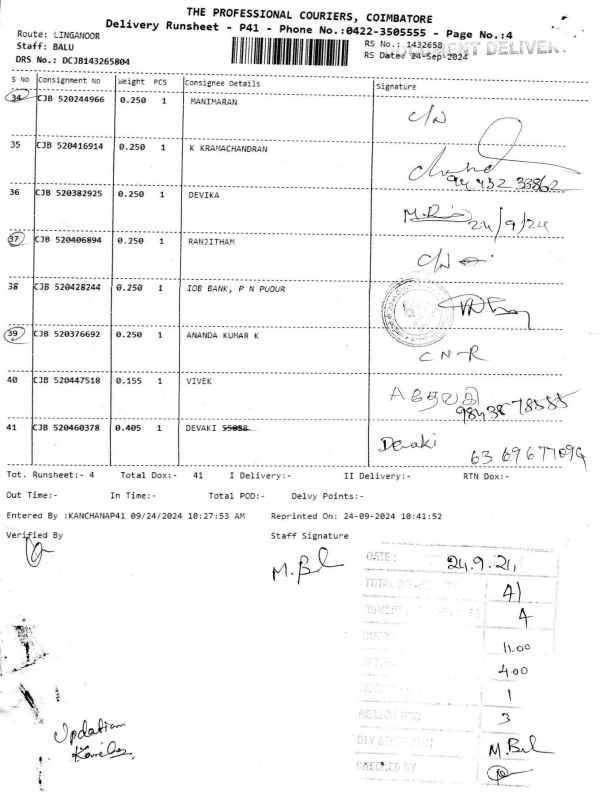 THE PROFESSIONAL COURIERS, COIMBATORE
Delivery Runsheet - P41 - Phone No.:0422-3505555 - Page No.:4
Route: LINGANOOR
RS No.: 1432658
DOCUMENT DELIVERY
Staff: BALU
RS Date: 24-Sep-2024
DRS No.: DCJB143265804
S No Consignment No Weight PCS Consignee Details Signature
34 CJB 520244966 0.250 1 MANIMARAN
35 CJB 520416914 0.250 1 K KRAMACHANDRAN
94432 33862
36 CJB 520382925 0.250 1 DEVIKA
24/9/24
37 CJB 520406894 0.250 1 RANJITHAM
38 CJB 520428244 0.250 1 IOB BANK, P N PUDUR
39 CJB 520376692 0.250 1 ANANDA KUMAR K
CN-R
40 CJB 520447518 0.155 1 VIVEK
41 CJB 520460378 0.405 1 DEVAKI 55058
Devaki
Tot. Runsheet:- 4 Total Dox:- 41 I Delivery:- II Delivery:- RTN Dox:-
Out Time:- In Time:- Total POD:- Delvy Points:-
Entered By :KANCHANAP41 09/24/2024 10:27:53 AM Reprinted On: 24-09-2024 10:41:52
Verified By Staff Signature
M. Bal
DATE: 24.9.21,
41
4
11.00
4.00
1
3
M. Bal
CHECKED BY
Updation